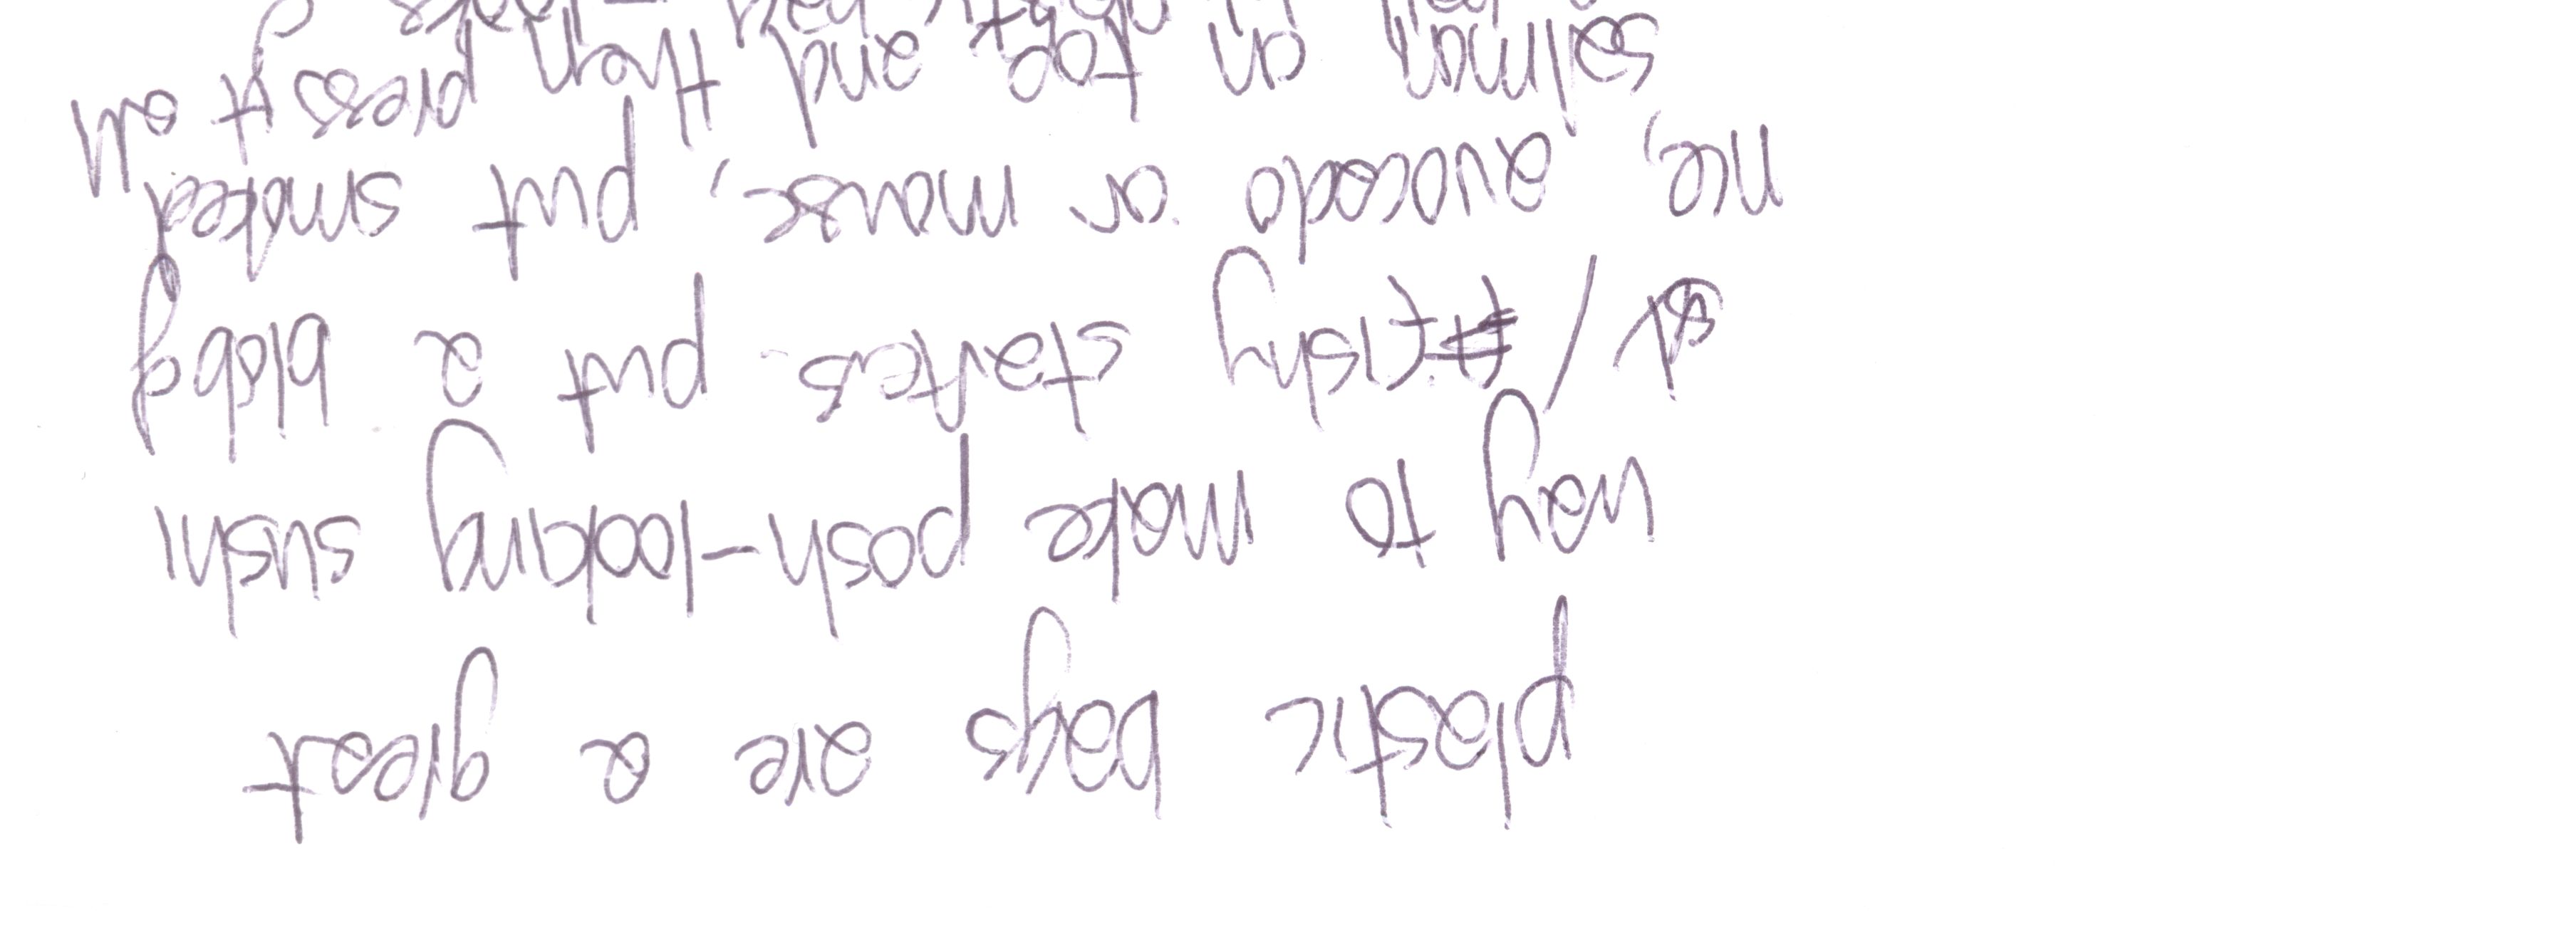 plastic bags are a great
way to make posh-looking sushi
/ fishy starters - put a blob of
rice, avocado or mousse, put smoked
salmon on top and then press it all